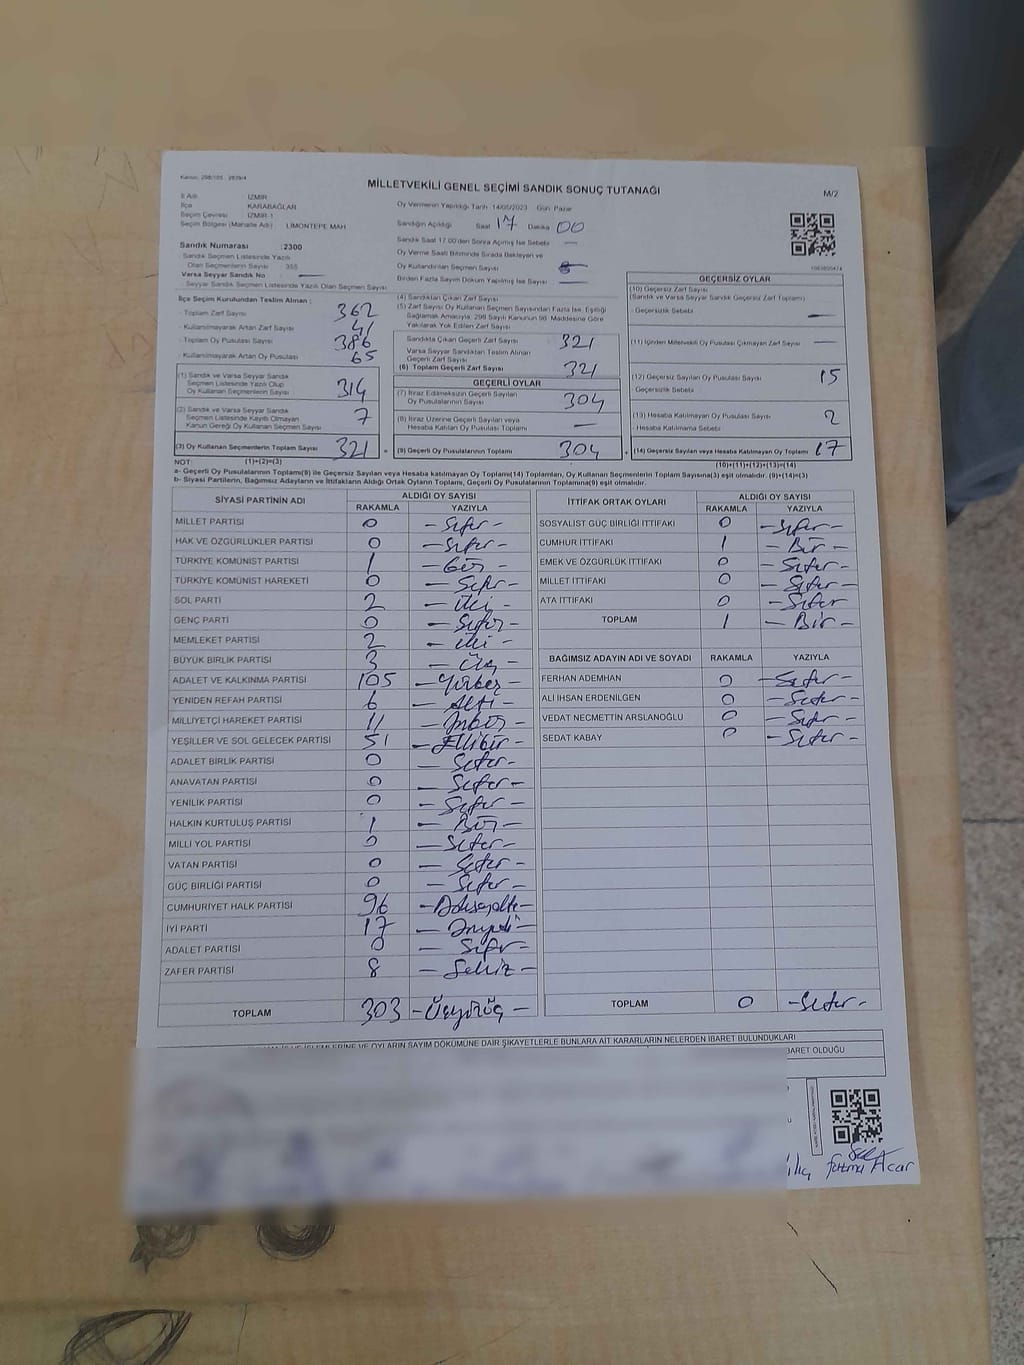 Kanun: 298/105 - 2839/4
MİLLETVEKİLİ GENEL SEÇİMİ SANDIK SONUÇ TUTANAĞI
M/2
İl Adı İZMİR
İlçe KARABAĞLAR
Seçim Çevresi İZMİR-1
Seçim Bölgesi (Mahalle Adı) LİMONTEPE MAH
Sandık Numarası : 2300
Sandık Seçmen Listesinde Yazılı
Olan Seçmenlerin Sayısı 355
Varsa Seyyar Sandık No —
Seyyar Seçmen Listesinde Yazılı Olan Seçmen Sayısı
Oy Vermenin Yapıldığı Tarih 14/05/2023 Gün: Pazar
Sandığın Açıldığı Saat 17 Dakika 00
Sandık Saat 17.00'den Sonra Açılmış İse Sebebi —
Oy Verme Saati Bitiminde Sırada Bekleyen ve
Oy Kullandırılan Seçmen Sayısı
Birden Fazla Sayım Döküm Yapılmış İse Sayısı —
İlçe Seçim Kurulundan Teslim Alınan ;
Toplam Zarf Sayısı 362
Kullanılmayarak Artan Zarf Sayısı 41
Toplam Oy Pusulası Sayısı 386
Kullanılmayarak Artan Oy Pusulası 65
(1) Sandık ve Varsa Seyyar Sandık
Seçmen Listesinde Yazılı Olup
Oy Kullanan Seçmenlerin Sayısı 314
(2) Sandık ve Varsa Seyyar Sandık
Seçmen Listesinde Kayıtlı Olmayan
Kanun Gereği Oy Kullanan Seçmen Sayısı 7
(3) Oy Kullanan Seçmenlerin Toplam Sayısı 321
(1)+(2)=(3)
(4) Sandıktan Çıkan Zarf Sayısı
(5) Zarf Sayısı Oy Kullanan Seçmen Sayısından Fazla İse, Eşitliği
Sağlamak Amacıyla; 298 Sayılı Kanunun 98. Maddesine Göre
Yakılarak Yok Edilen Zarf Sayısı
Sandıkta Çıkan Geçerli Zarf Sayısı 321
Varsa Seyyar Sandıktan Teslim Alınan
Geçerli Zarf Sayısı
(6) Toplam Geçerli Zarf Sayısı 321
GEÇERLİ OYLAR
(7) İtiraz Edilmeksizin Geçerli Sayılan
Oy Pusulalarının Sayısı 304
(8) İtiraz Üzerine Geçerli Sayılan veya
Hesaba Katılan Oy Pusulası Toplamı —
= (9) Geçerli Oy Pusulası Toplamı 304
GEÇERSİZ OYLAR
(10) Geçersiz Zarf Sayısı
(Sandık ve Varsa Seyyar Sandık Geçersiz Zarf Toplamı)
- Geçersizlik Sebebi —
(11) İçinden Milletvekili Oy Pusulası Çıkmayan Zarf Sayısı —
(12) Geçersiz Sayılan Oy Pusulası Sayısı 15
Geçersizlik Sebebi
(13) Hesaba Katılmayan Oy Pusulası Sayısı 2
- Hesaba Katılmama Sebebi
+ (14) Geçersiz Sayılan veya Hesaba Katılmayan Oy Toplamı 17
(10)+(11)+(12)+(13)=(14)
NOT:
a- Geçerli Oy Pusulalarının Toplamı(9) ile Geçersiz Sayılan veya Hesaba Katılmayan Oy Toplamı(14) Toplamları, Oy Kullanan Seçmenlerin Toplam Sayısına(3) eşit olmalıdır. (9)+(14)=(3)
b- Siyasi Partilerin, Bağımsız Adayların ve İttifakların Aldığı Ortak Oyların Toplamı, Geçerli Oy Pusulalarının Toplamına(9) eşit olmalıdır.
SİYASİ PARTİNİN ADI ALDIĞI OY SAYISI
RAKAMLA YAZIYLA
MİLLET PARTİSİ 0 - Sıfır -
HAK VE ÖZGÜRLÜKLER PARTİSİ 0 - Sıfır -
TÜRKİYE KOMÜNİST PARTİSİ 1 - Bir -
TÜRKİYE KOMÜNİST HAREKETİ 0 - Sıfır -
SOL PARTİ 2 - İki -
GENÇ PARTİ 0 - Sıfır -
MEMLEKET PARTİSİ 2 - iki -
BÜYÜK BİRLİK PARTİSİ 3 - Üç -
ADALET VE KALKINMA PARTİSİ 105 - Yüzbeş -
YENİDEN REFAH PARTİSİ 6 - Altı -
MİLLİYETÇİ HAREKET PARTİSİ 11 - Onbir -
YEŞİLLER VE SOL GELECEK PARTİSİ 51 - Ellibir -
ADALET BİRLİK PARTİSİ 0 - Sıfır -
ANAVATAN PARTİSİ 0 - Sıfır -
YENİLİK PARTİSİ 0 - Sıfır -
HALKIN KURTULUŞ PARTİSİ 1 - Bir -
MİLLİ YOL PARTİSİ 0 - Sıfır -
VATAN PARTİSİ 0 - Sıfır -
GÜÇ BİRLİĞİ PARTİSİ 0 - Sıfır -
CUMHURİYET HALK PARTİSİ 96 - Doksanaltı -
İYİ PARTİ 17 - Onyedi -
ADALET PARTİSİ 0 - Sıfır -
ZAFER PARTİSİ 8 - Sekiz -
TOPLAM 303 - Üçyüzüç -
İTTİFAK ORTAK OYLARI ALDIĞI OY SAYISI
RAKAMLA YAZIYLA
SOSYALİST GÜÇ BİRLİĞİ İTTİFAKI 0 - Sıfır -
CUMHUR İTTİFAKI 1 - Bir -
EMEK VE ÖZGÜRLÜK İTTİFAKI 0 - Sıfır -
MİLLET İTTİFAKI 0 - Sıfır -
ATA İTTİFAKI 0 - Sıfır
TOPLAM 1 - Bir -
BAĞIMSIZ ADAYIN ADI VE SOYADI RAKAMLA YAZIYLA
FERHAN ADEMHAN 0 - Sıfır -
ALİ İHSAN ERDENİLGEN 0 - Sıfır -
VEDAT NECMETTİN ARSLANOĞLU 0 - Sıfır -
SEDAT KABAY 0 - Sıfır -
TOPLAM 0 - Sıfır -
İŞLEMLERİNE VE OYLARIN SAYIM DÖKÜMÜNE DAİR ŞİKAYETLERLE BUNLARA AİT KARARLARIN NELERDEN İBARET BULUNDUKLARI
İBARET OLDUĞU
Fatma Acar